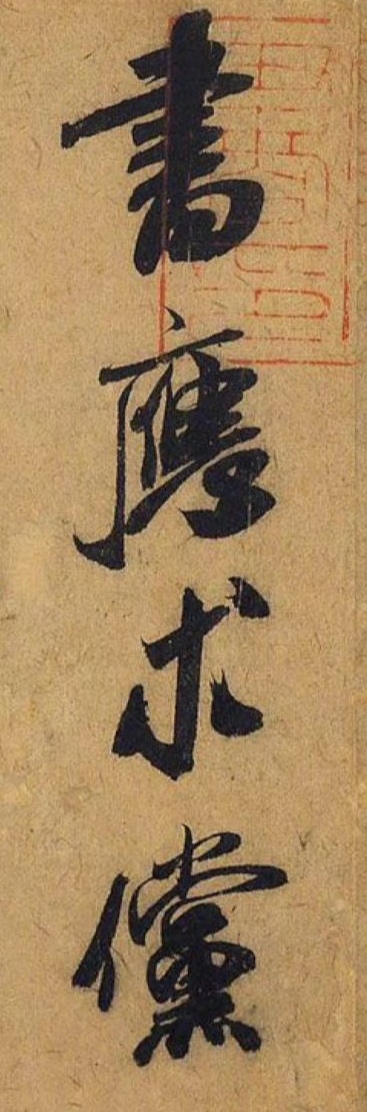 書應求儻